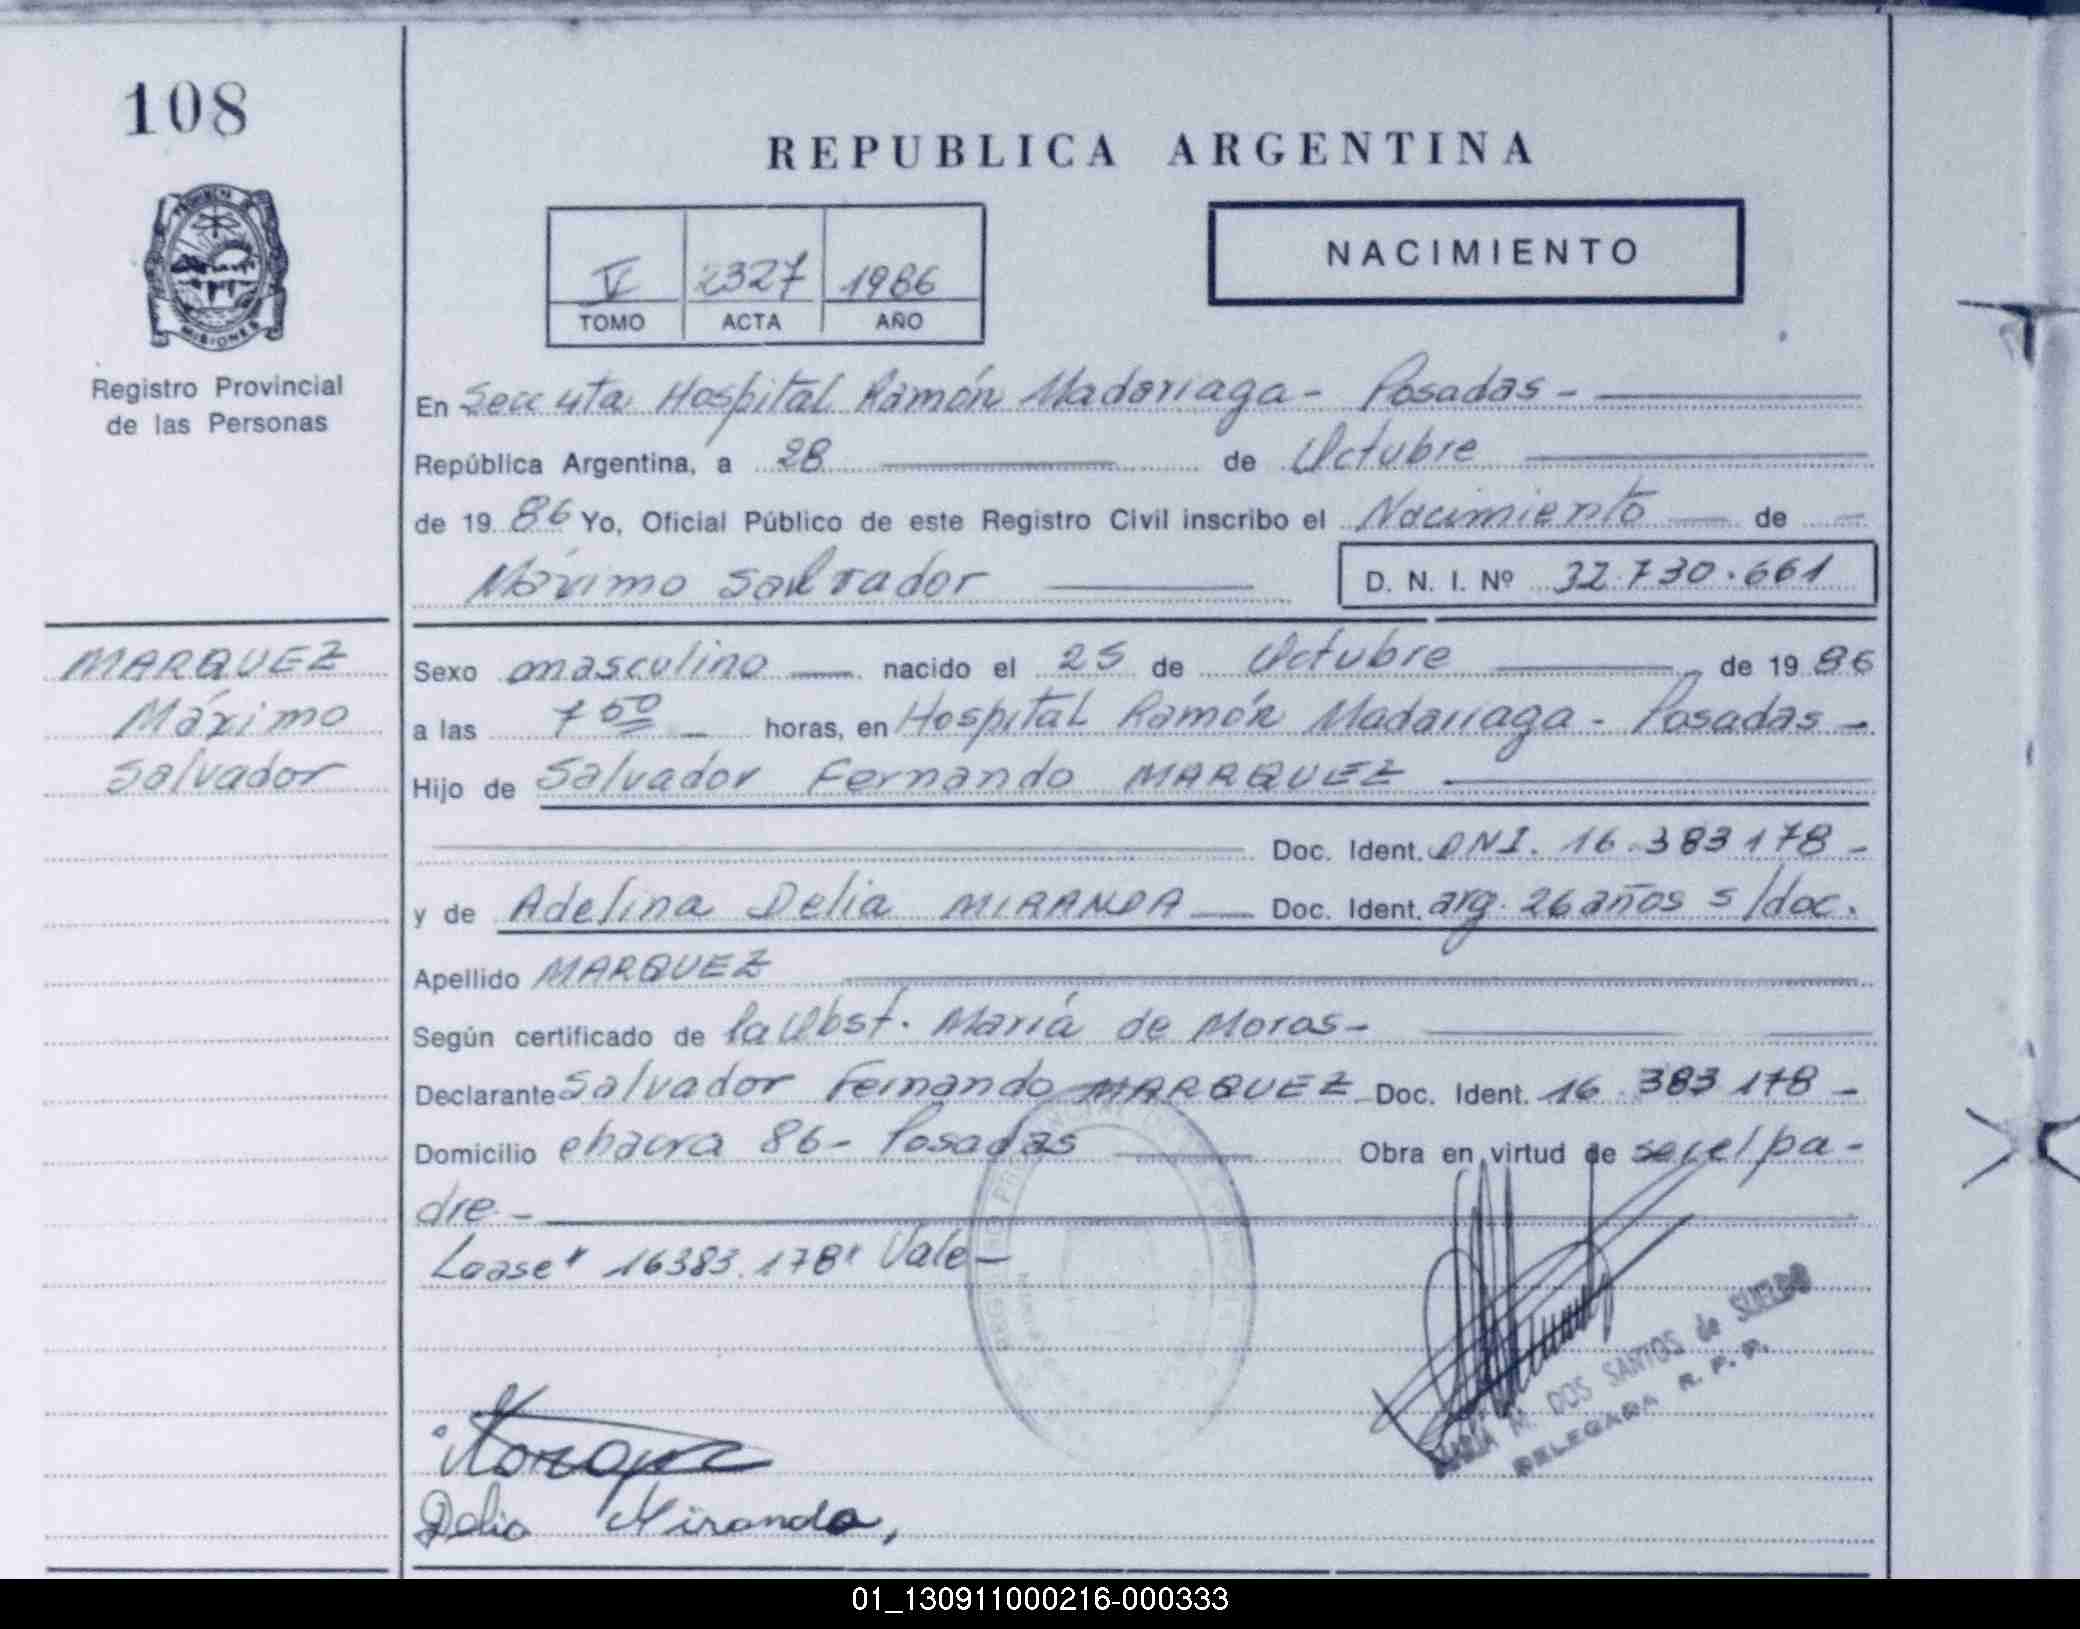 108
REPUBLICA ARGENTINA
PROVINCIA DE
MISIONES
Registro Provincial
de las Personas
V 2327 1986
TOMO ACTA AÑO
NACIMIENTO
En Secc 4ta Hospital Ramón Madariaga - Posadas -
República Argentina, a 28 de Octubre
de 1986 Yo, Oficial Público de este Registro Civil inscribo el Nacimiento de
Máximo Salvador
D. N. I. Nº 32.730.661
MARQUEZ
Máximo
Salvador
Sexo masculino nacido el 25 de Octubre de 1986
a las 7 50 horas, en Hospital Ramón Madariaga - Posadas -
Hijo de Salvador Fernando MARQUEZ
Doc. Ident. DNI. 16.383178 -
y de Adelina Delia MIRANDA Doc. Ident. arg. 26 años s/doc.
Apellido MARQUEZ
Según certificado de la Obst. María de Moras -
Declarante Salvador Fernando MARQUEZ Doc. Ident. 16 383 178 -
Domicilio chacra 86 - Posadas Obra en virtud de ser el pa-
dre -
Lease "16383.178" Vale -
MARIA M. DOS SANTOS de SUELDO
DELEGADA R. P. P.
Marquez
Delia Miranda,
01_130911000216-000333